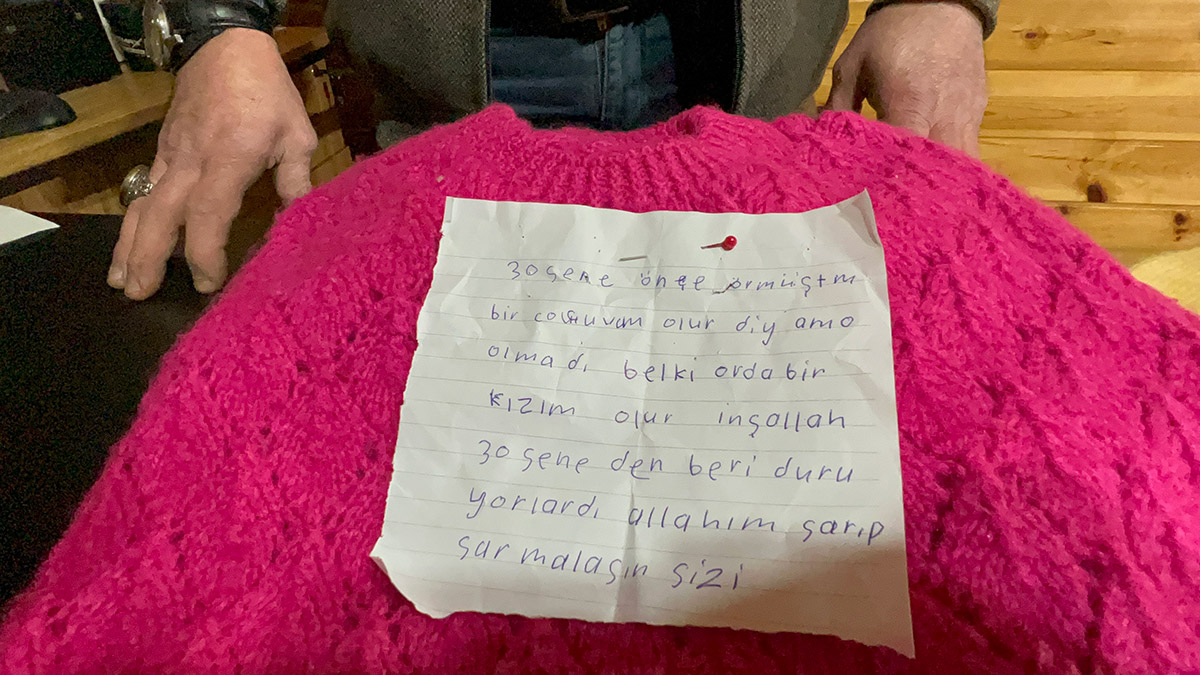 30 şene önçe örmüiştm
bir coğuvam olur diy amo
olmadı belki orda bir
kızım olur inşallah
30 şene den beri duru
yorlardı allahım şarıp
şar malaşın şizi